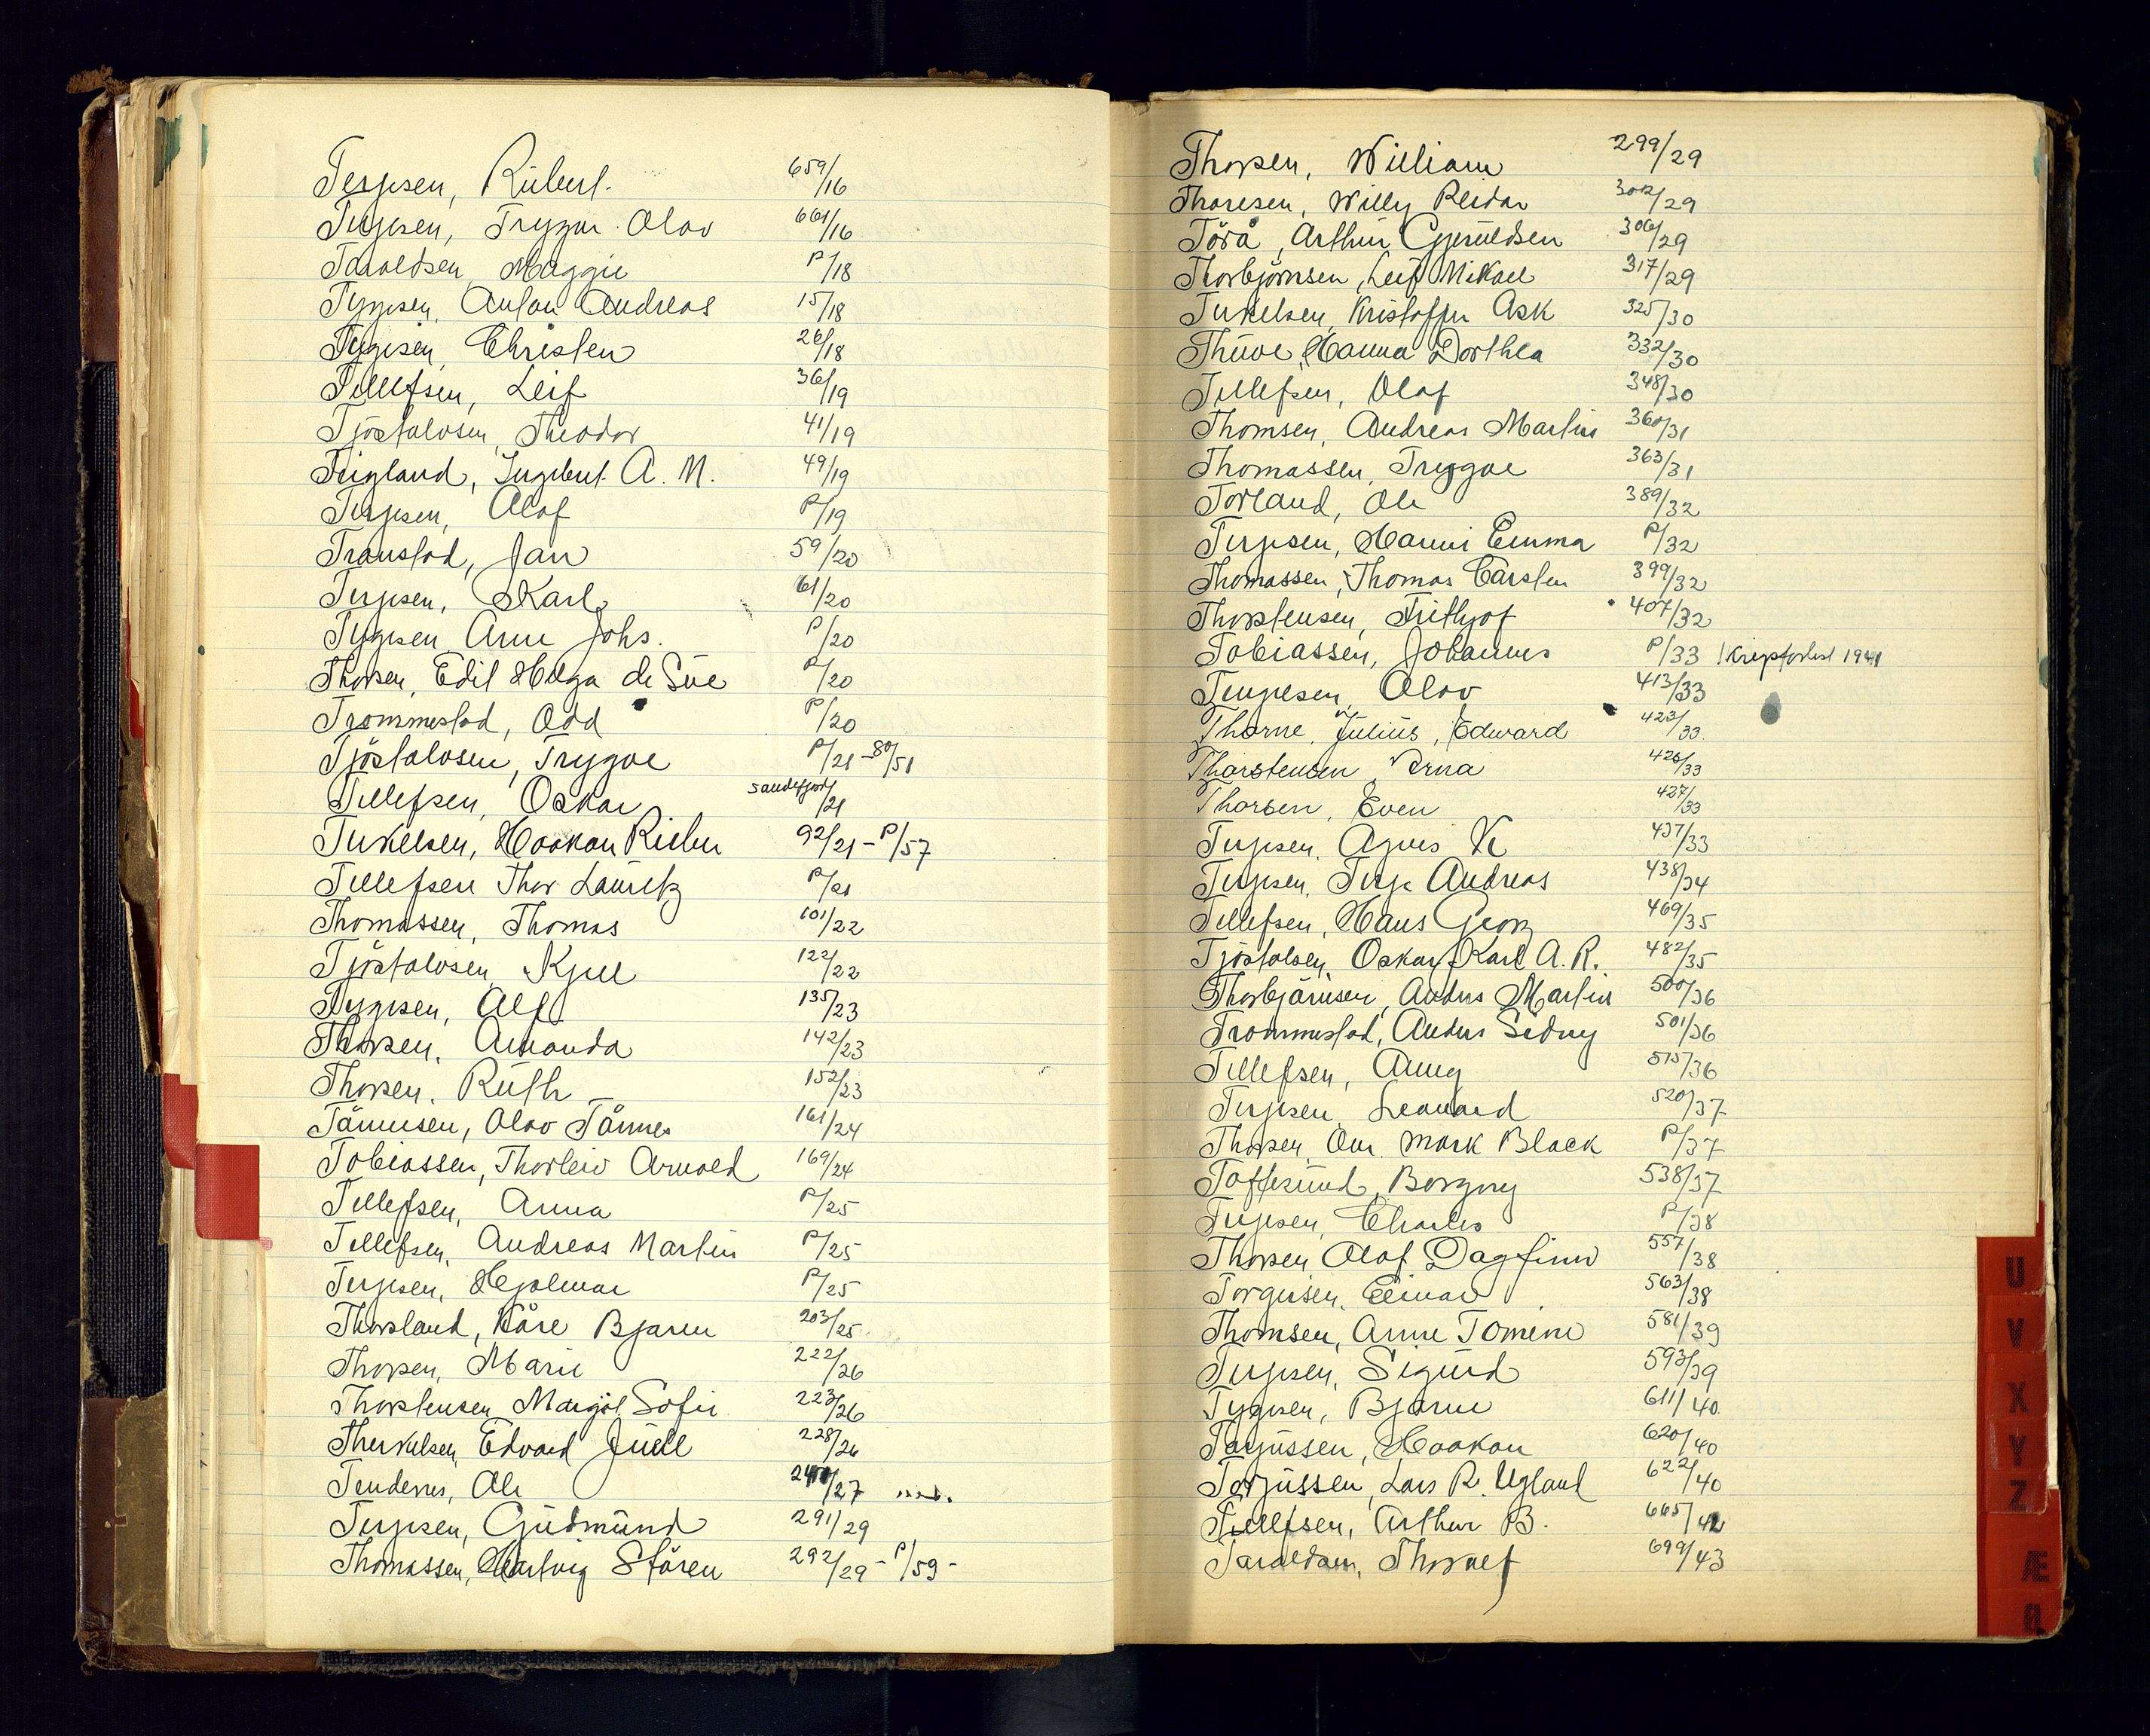 Terjesen, Robert. 659/16
Terjesen, Trygve Olav 661/16
Taraldsen, Maggie P/18
Terjesen, Anton Andreas 15/18
Terjesen, Christen 26/18
Tellefsen, Leif 36/19
Tjöstalvsen, Theodor 41/19
Trigland, Ingebret A. M. 49/19
Terjesen, Olaf P/19
Transtad, Jan 59/20
Terjesen, Karl 61/20
Tygesen, Arne Johs. P/20
Thorsen, Edil Helga de Süe P/20
Trommestad, Odd P/20
Tjöstalvsen, Trygve P/21 - 80/51
Tellefsen, Oskar Sandefjord/21
Terkelsen, Haakon Richer 92/21 - P/57
Tellefsen Thor Lauritz P/21
Thomassen, Thomas 101/22
Tjöstalvsen, Kjell 122/22
Tygesen, Alf 135/23
Thorsen, Amanda 142/23
Thorsen, Ruth 152/23
Tännesen, Olav Tånnes 161/24
Tobiassen, Thorleiv Arnold 169/24
Tellefsen, Anna P/25
Tellefsen, Andreas Martin P/25
Terjesen, Hjalmar P/25
Thorsland, Kåre Bjarne 203/25
Thorsen, Marie 222/26
Thorstensen, Margit Sofie 223/26
Therkelsen, Edvard Juell 228/26
Tendenes, Ole /27
Terjesen, Gudmund 291/29
Thomassen, Hartvig Stören 292/29 - P/59 -
Thorsen, William 299/29
Thoresen, Willy Reidar 302/29
Törå, Arthur Gjeruldsen 306/29
Thorbjörnsen, Leif Mikael 317/29
Terkelsen, Kristoffer Ask 325/30
Thüve, Hanna Dorthea 332/30
Tellefsen, Olaf 348/30
Thomsen, Andreas Martin 360/31
Thomassen, Trygve 363/31
Torland, Ole 389/32
Terjesen, Hanni Emma P/32
Thomassen, Thomas Carsten 399/32
Thorstensen, Frithjof 407/32
Tobiassen, Johannes P/33 ! Krigsforlist 1941
Tengesen, Olav 413/33
Thorne, Julius, Edward 423/33
Thorstensen, Arna 426/33
Thorsen, Even 427/33
Terjesen, Agnes K 437/33
Terjesen, Terje Andreas 438/34
Tellefsen, Hans Georg 469/35
Tjöstolsen, Oskar Karl A. R. 482/35
Thorbjörnsen, Anders Martin 500/36
Trommestad, Anders Sidney 501/36
Tellefsen, Anny 515/36
Terjesen, Leonard 520/37
Thorsen, Ove Mark Black P/37
Toffesund, Borgny 538/37
Terjesen, Charles P/38
Thorsen Olaf Dagfinn 557/38
Torgersen, Einar 563/38
Thomsen, Anne Tomine 581/39
Terjesen, Sigurd 593/39
Tygesen, Bjarne 611/40
Tarjussen, Haakon 620/40
Terjussen, Lars R. Ugland 622/40
Tellefsen, Arthur B. 665/42
Taraldsen, Thoralf 699/43
U
V
X
Y
Z
Æ
Ø